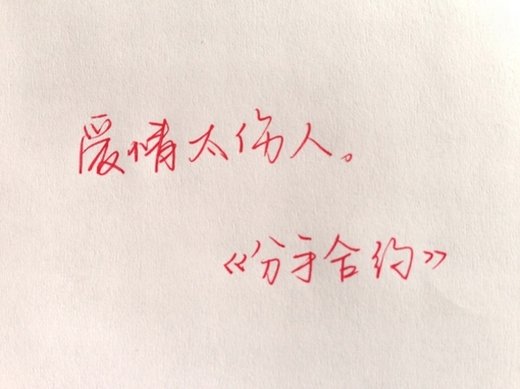 爱情太伤人。
《分手合约》